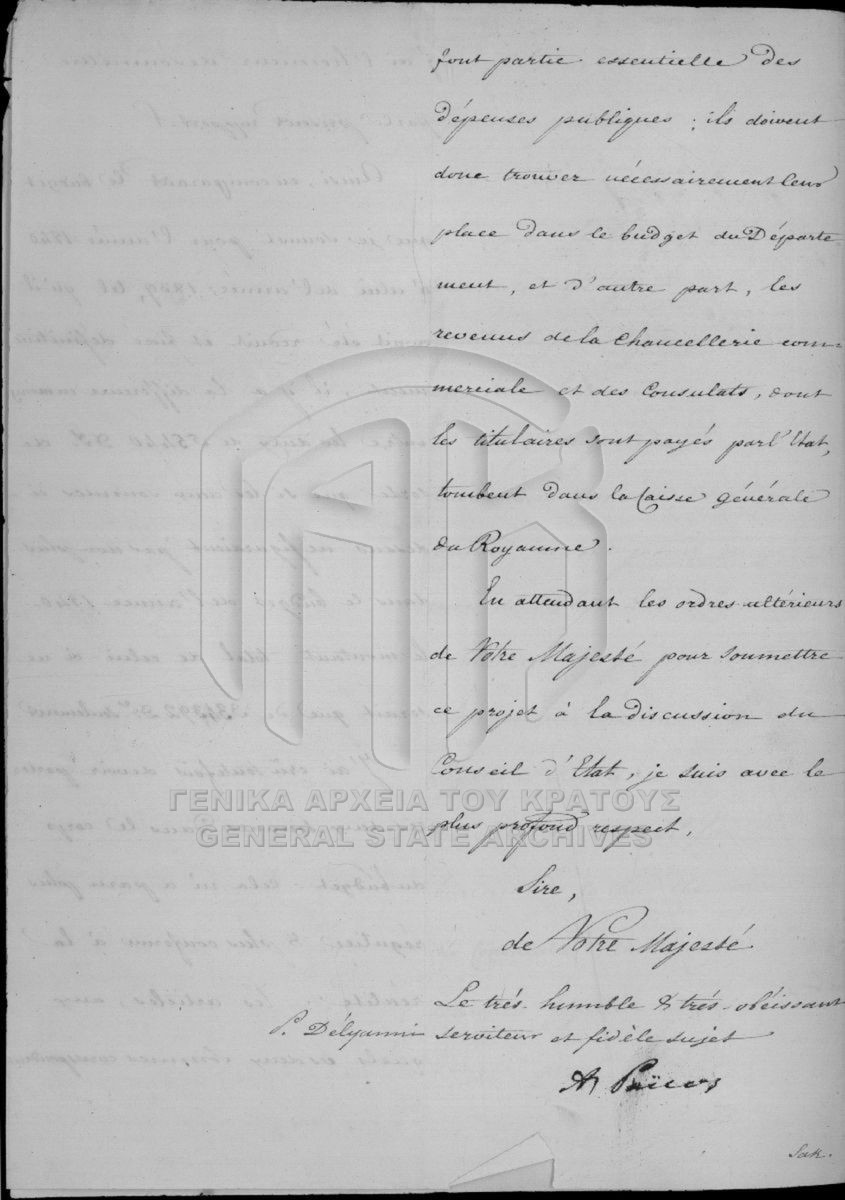 font partie essentielle des
dépenses publiques ; ils doivent
donc trouver nécessairement leur
place dans le budget du Départe
ment, et d'autre part, les
revenus de la Chancellerie com-
merciale et des Consulats, dont
les titulaires sont payés par l'Etat,
tombent dans la Caisse générale
du Royaume.
En attendant les ordres ultérieurs
de Votre Majesté pour soumettre
ce projet à la discussion du
Conseil d'Etat, je suis avec le
plus profond respect,
Sire,
de Votre Majesté
Le trés humble & trés-obéissant
P. Délyanni serviteur et fidèle sujet
A
Sak.
ΓΕΝΙΚΑ ΑΡΧΕΙΑ ΤΟΥ ΚΡΑΤΟΥΣ
GENERAL STATE ARCHIVES